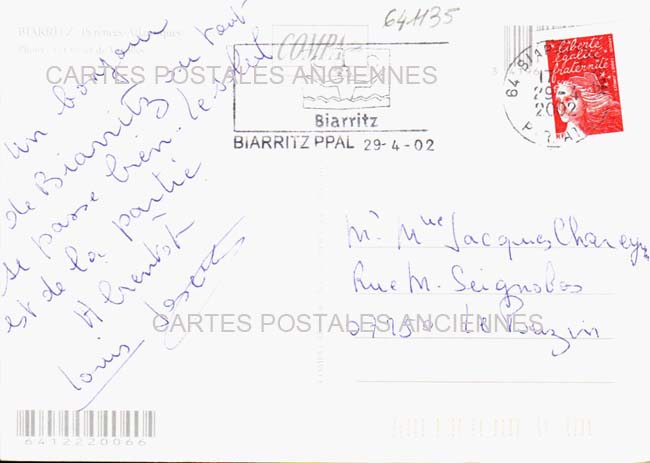 BIARRITZ - Pyrénées-Atlantiques
641135
COMPA
CARTES POSTALES ANCIENNES
Biarritz
BIARRITZ PPAL 29-4-02
64 BIARRITZ
17
29
2002
liberté
égalité
fraternité
RF
Un bonjour
de Biarritz où tout
se passe bien. Le soleil
est de la partie
A bientôt
Louis
Mr Mme Jacques
Rue M. Seignobos
CARTES POSTALES ANCIENNES
Le Pouzin
6412220066